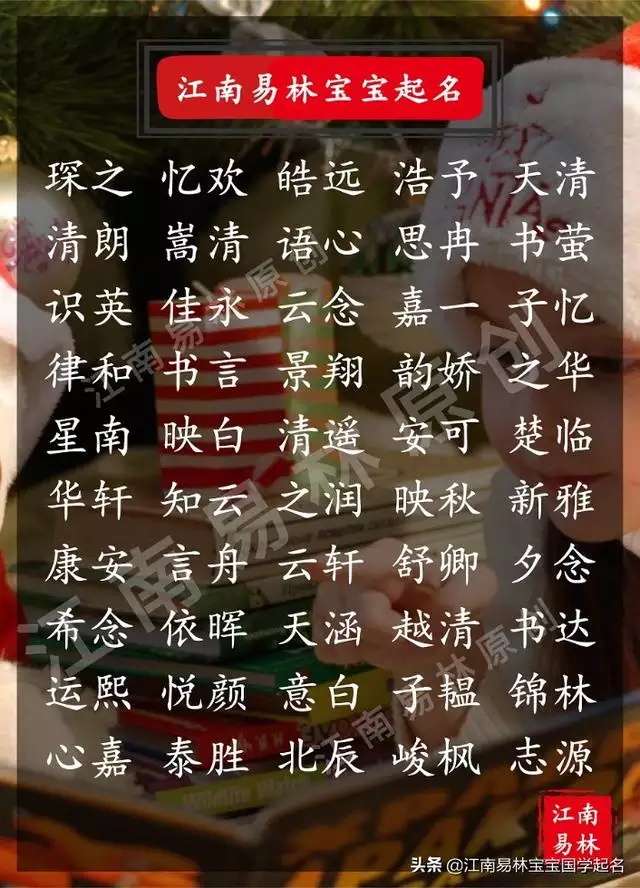 江南易林宝宝起名
琛之 忆欢 皓远 浩予 天清
清朗 嵩清 语心 思冉 书萤
识英 佳永 云念 嘉一 子忆
律和 书言 景翔 韵娇 之华
星南 映白 清遥 安可 楚临
华轩 知云 之润 映秋 新雅
康安 言舟 云轩 舒卿 夕念
希念 依晖 天涵 越清 书达
运熙 悦颜 意白 子韫 锦林
心嘉 泰胜 北辰 峻枫 志源
江南易林原创
江南易林原创
江南易林原创
江南
易林
头条 @江南易林宝宝国学起名